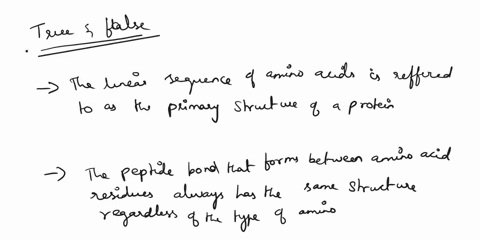 True & false
→ The linear sequence of amino acids is reffered
to as the primary structure of a protein
→ The peptide bond that forms between amino acid
residues always has the same structure
regardless of the type of amino